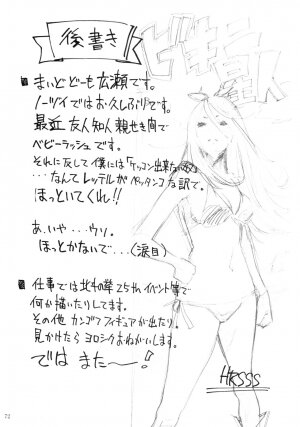 後書き
まいどどーも広瀬です。
ノーツイではお久しぶりです。
最近 友人知人 親せき間で
ベビーラッシュです。
それに反して僕には「ケッコン出来ない奴」
…なんてレッテルがペッタンコな訳で。
ほっといてくれ!!
あ、いや…ウソ。
ほっとかないで…(涙目)
仕事では北斗の拳25thイベント等で
何か描いたりしてます。
その他 カンゴフィギュアが出たり。
見かけたらヨロシクおねがいします。
では また〜!
HRSSS
72